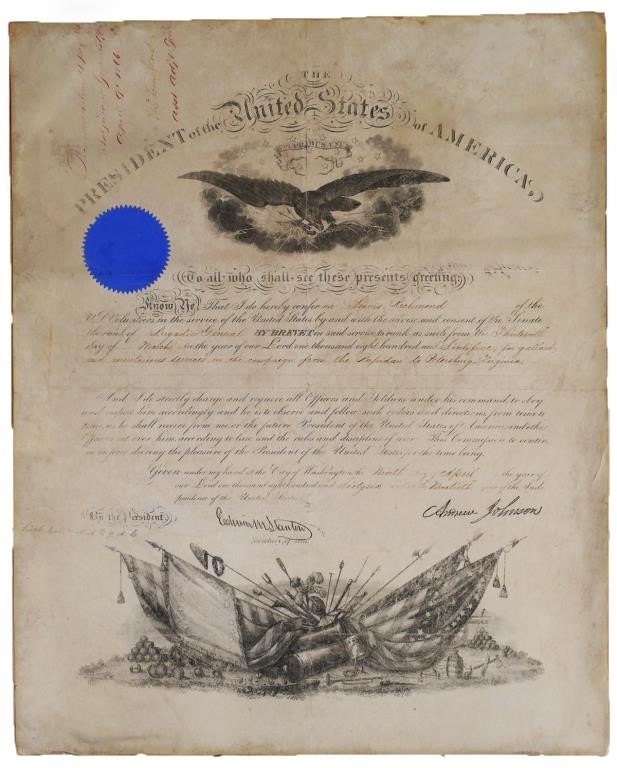 THE
United States
PRESIDENT of the
of AMERICA,
To all who shall see these presents greeting:
Know Ye, That I do hereby confer on Richmond of the
U.S. Volunteers in the service of the United States by and with the advice and consent of the Senate
the rank of Brigadier General BY BREVET in said service to rank as such from the Thirteenth
day of March in the year of our Lord one thousand eight hundred and Sixtyfive, for gallant
and meritorious services in the campaign from the Rapidan to Petersburg, Virginia.
And I do strictly charge and require all Officers and Soldiers under his command, to obey
and respect him accordingly and he is to observe and follow such orders and directions, from time to
time, as he shall receive from me, or the future President of the United States of America, and other
Officers set over him, according to law, and the rules and discipline of war. This Commission to continue
in force during the pleasure of the President of the United States for the time being.
Given under my hand at the City of Washington, this Ninth day of April in the year of
our Lord one thousand eight hundred and Sixtysix and in the Ninetieth year of the Inde
pendence of the United States.
By the President,
Andrew Johnson
Edwin M Stanton
Secretary of War